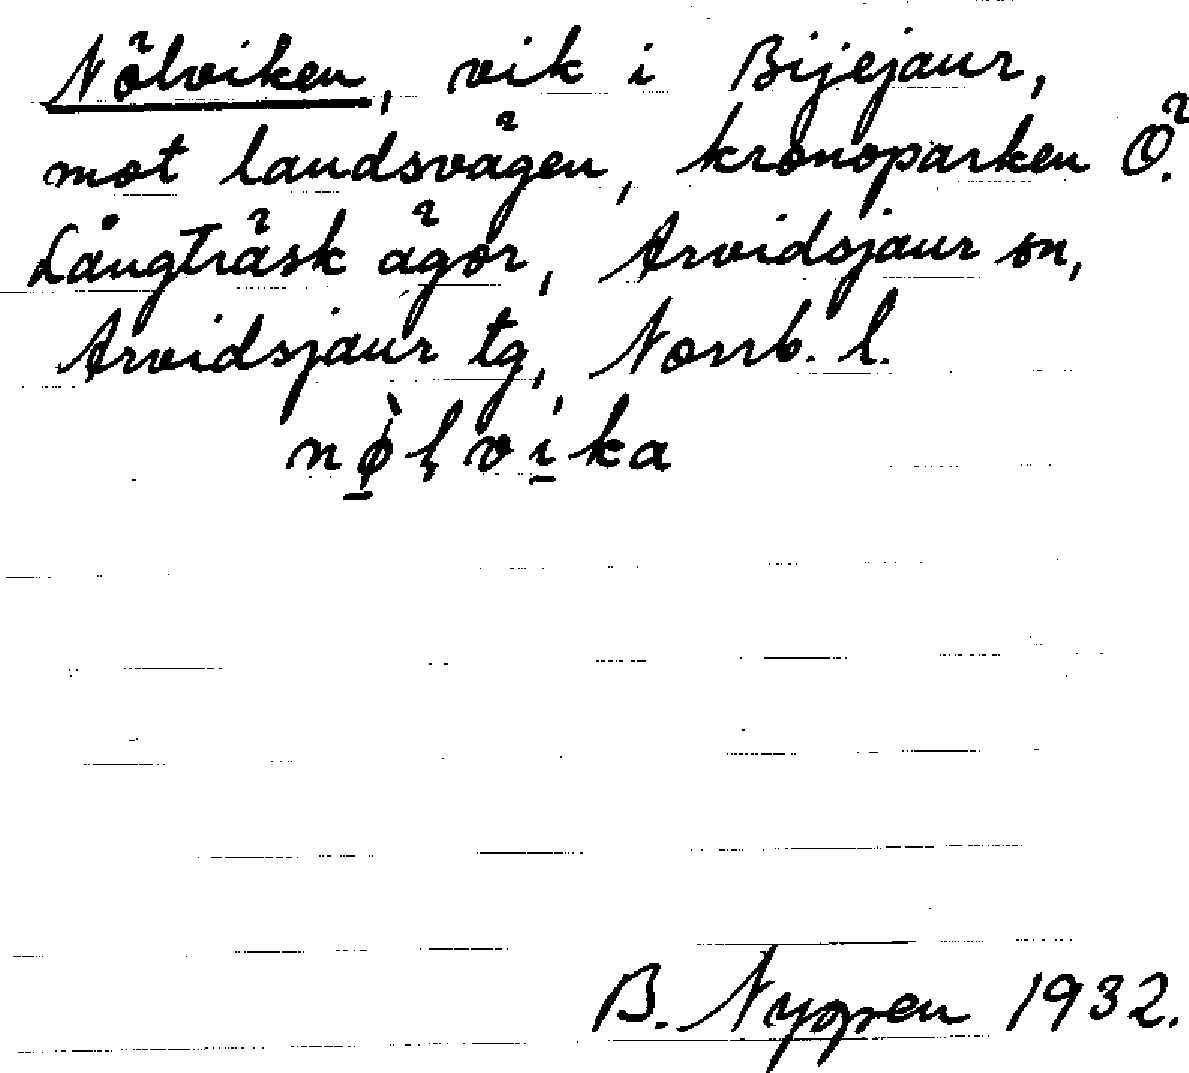 Nölviken, vik i Bijejaur,
mot landsvägen, kronoparken Ö.
Långträsk ägor, Arvidsjaur sn,
Arvidsjaur tg, Norrb. l.
nø̱̀ḷvi̱ka
B. Nygren 1932.